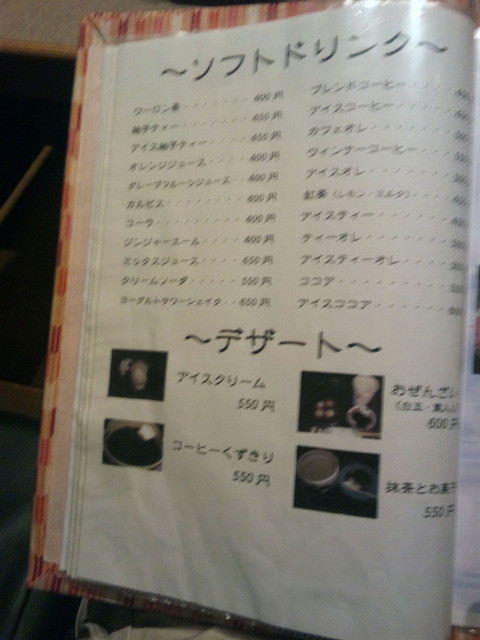 ～ソフトドリンク～
ウーロン茶・・・・・・・400円
柚子ティー・・・・・・・450円
アイス柚子ティー・・・・450円
オレンジジュース・・・・400円
グレープフルーツジュース・・400円
カルピス・・・・・・・・400円
コーラ・・・・・・・・・400円
ジンジャーエール・・・・400円
ミックスジュース・・・・650円
クリームソーダ・・・・・550円
ヨーグルトサワーシェイク・・650円
ブレンドコーヒー
アイスコーヒー
カフェオレ
ウィンナーコーヒー
アイスオレ
紅茶（レモン・ミルク）
アイスティー
ティーオレ
アイスティーオレ
ココア
アイスココア
～デザート～
アイスクリーム
550円
コーヒーくずきり
550円
おぜんざい
600円
抹茶とお菓子
550円